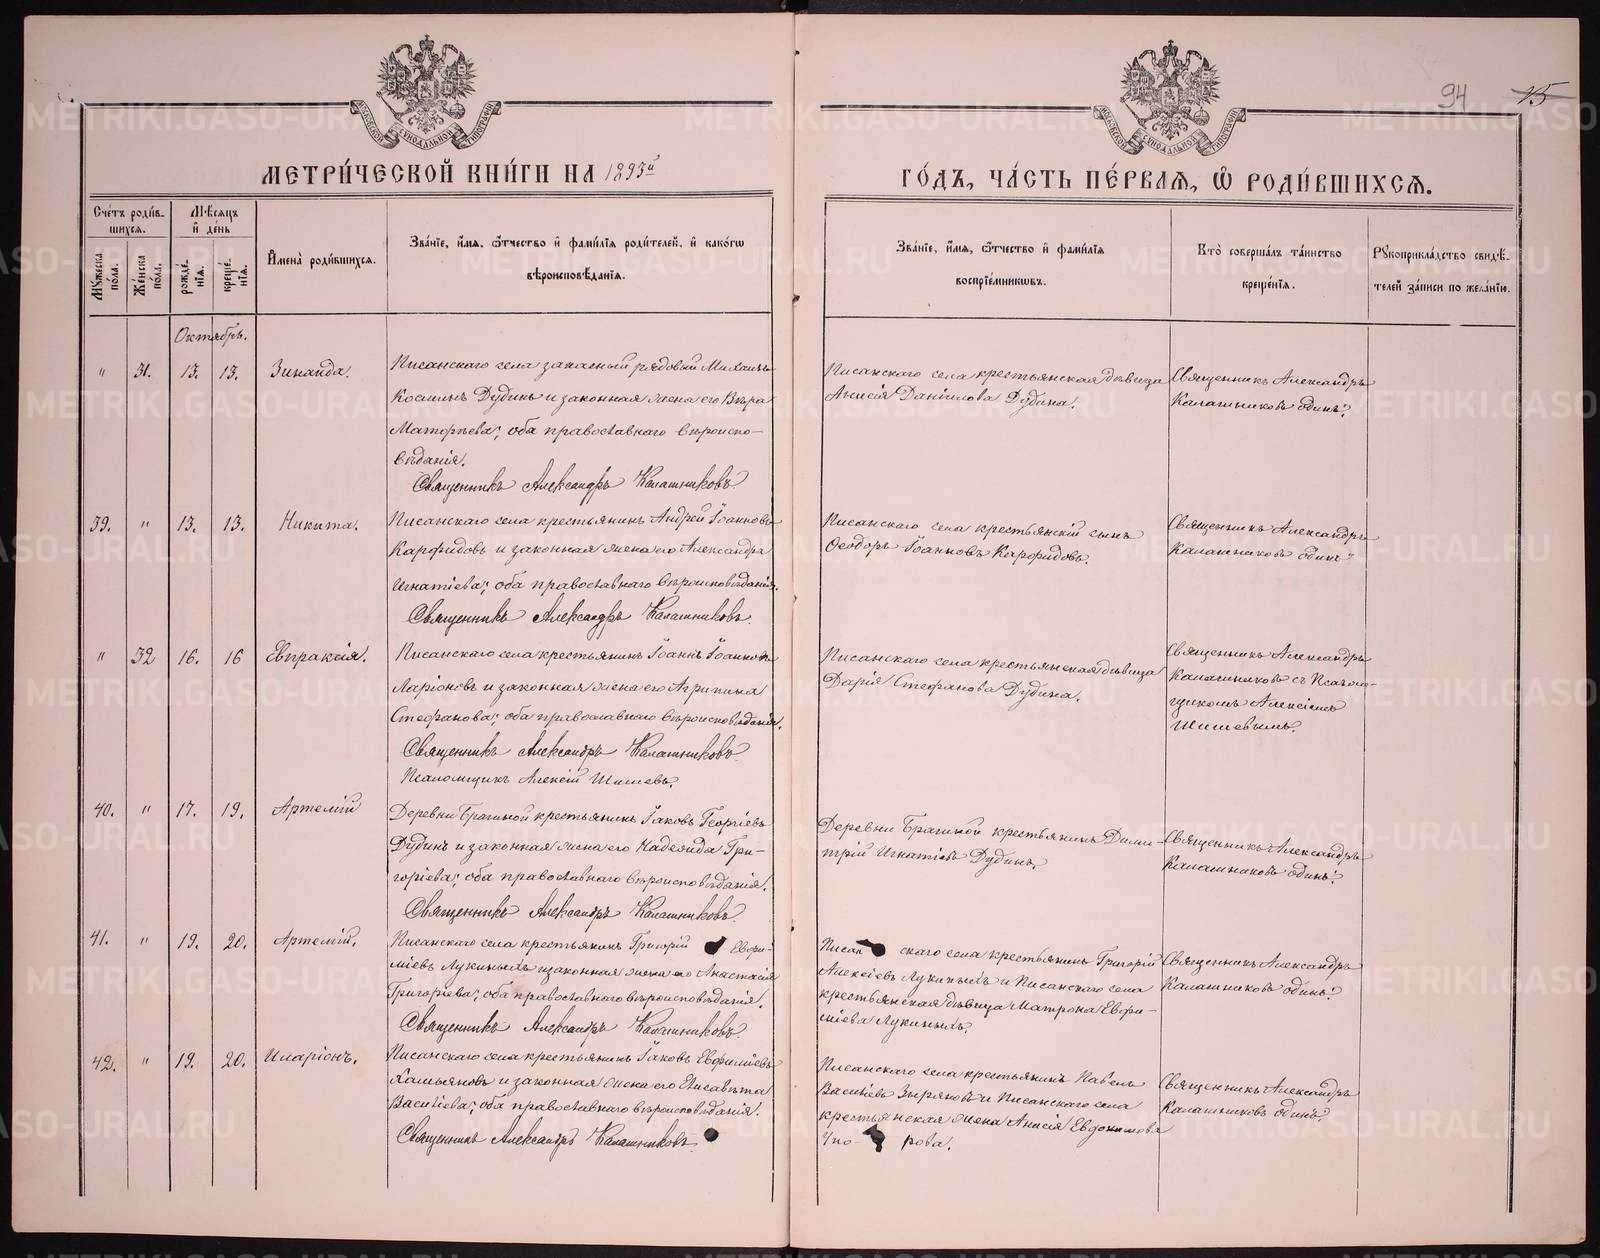 94 15
МЕТРИ́ЧЕСКОЙ КНИ́ГИ НА 1893й
ГО́ДЪ, ЧА́СТЬ ПЕ́РВАЯ, Ѡ҆ РОДИ́ВШИХСЯ.
Сче́тъ роди́в-
шихся.
Мѣ́сяцъ
и҆ де́нь
Му́жеска
по́ла.
Же́нска
по́ла.
рожде́-
нія.
креще́-
нія.
И҆мена̀ роди́вшихся.
Зва́ніе, и҆́мя, ѻ҆́тчество и҆ фами́лія роди́телей, и҆ како́гѡ
вѣроисповѣ́данія.
Зва́ніе, и҆́мя, ѻ҆́тчество и҆ фами́лія
воспріе́мникѡвъ.
Кто̀ соверша́лъ та́инство
креще́нія.
Рукоприкла́дство свидѣ́-
телей за́писи по жела́нію.
Октябрь.
" 31. 13. 13. Зинаида.
Писанскаго села запасный рядовый Михаилъ
Косминъ Дудинъ и законная жена его Вѣра
оба православнаго вѣроиспо-
вѣданія.
Священникъ Александръ Калашниковъ.
Писанскаго села крестьянская дѣвица
Анисія Даніилова Дудина.
Священникъ Александръ
Калашниковъ одинъ.
39. " 13. 13. Никита.
Писанскаго села крестьянинъ Андрей Іоанновъ
Карфидовъ и законная жена его Александра
Игнатіева; оба православнаго вѣроисповѣданія.
Священникъ Александръ Калашниковъ.
Писанскаго села крестьянскій сынъ
Ѳеодоръ Іоанновъ Карфидовъ.
Священникъ Александръ
Калашниковъ одинъ.
" 32 16. 16 Евпраксія.
Писанскаго села крестьянинъ Іоаннъ Іоанновъ
Ларіоновъ и законная жена его Агрипина
Стефанова; оба православнаго вѣроисповѣданія.
Священникъ Александръ Калашниковъ.
Псаломщикъ Алексій Шишевъ.
Писанскаго села крестьянская дѣвица
Дарія Стефанова Дудина.
Священникъ Александръ
Калашниковъ съ Псалом-
щикомъ Алексіемъ
Шишевымъ.
40. " 17. 19. Артемій
Деревни Брагиной крестьянинъ Іаковъ Георгіевъ
Дудинъ и законная жена его Надежда Гри-
горіева; оба православнаго вѣроисповѣданія.
Священникъ Александръ Калашниковъ.
Деревни Брагиной крестьянинъ Дими-
трій Игнатіевъ Дудинъ.
Священникъ Александръ
Калашниковъ одинъ.
41. " 19. 20. Артемій.
Писанскаго села крестьянинъ Григорій Евфи-
міевъ Лукиныхъ и законная жена его Анастасія
Григоріева; оба православнаго вѣроисповѣданія.
Священникъ Александръ Калашниковъ.
Писан скаго села крестьянинъ Григорій
Алексіевъ Лукиныхъ и Писанскаго села
крестьянская дѣвица Матрона Евфи-
міева Лукиныхъ.
Священникъ Александръ
Калашниковъ одинъ.
42. " 19. 20. Иларіонъ.
Писанскаго села крестьянинъ Іаковъ Евфиміевъ
и законная жена его Елисавета
Василіева; оба православнаго вѣроисповѣданія.
Священникъ Александръ Калашниковъ.
Писанскаго села крестьянинъ Павелъ
Василіевъ Зыряновъ и Писанскаго села
крестьянская жена Анисія Евдокимова
Упо- рова.
Священникъ Александръ
Калашниковъ одинъ.
METRIKI.GASO-URAL.RU